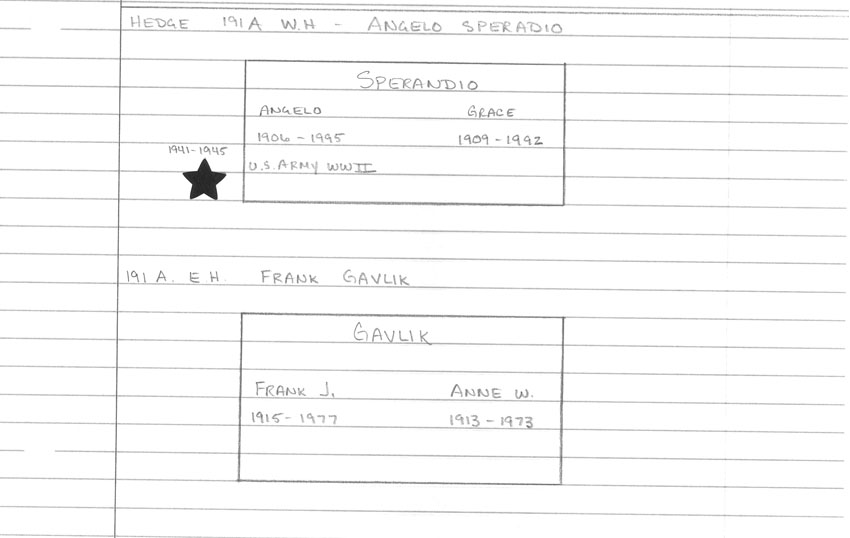 HEDGE 191 A W.H - ANGELO SPERADIO
SPERANDIO
ANGELO GRACE
1906 - 1995 1909 - 1992
1941-1945
U.S. ARMY WW II
191 A. E.H. FRANK GAVLIK
GAVLIK
FRANK J. ANNE W.
1915 - 1977 1913 - 1973